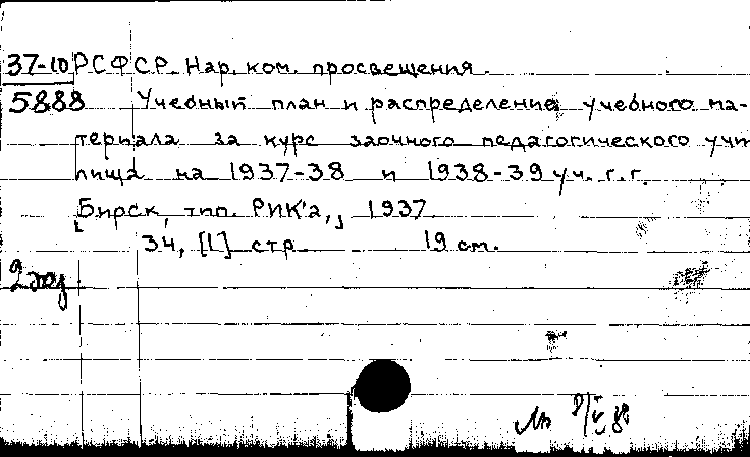 37-10 РСФСР. Нар. ком. просвещения.
5888 Учебный план и распределение учебного ма-
териала за курс заочного педагогического учи
лища на 1937-38 и 1938-39 уч. г.г.
[Бирск, тип. РИК'а,] 1937.
34, [1] стр. 19 см.
2 экз.